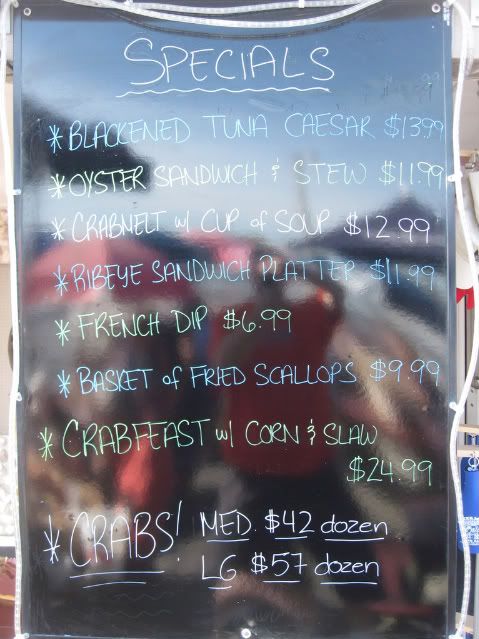 SPECIALS
* BLACKENED TUNA CAESAR $13.99
* OYSTER SANDWICH & STEW $11.99
* CRABMELT w/ CUP of SOUP $12.99
* RIBEYE SANDWICH PLATTER $11.99
* FRENCH DIP $6.99
* BASKET of FRIED SCALLOPS $9.99
* CRABFEAST w/ CORN & SLAW
$24.99
* CRABS! MED. $42 dozen
LG $57 dozen